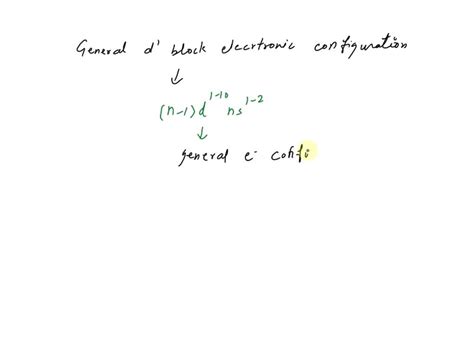 General d' block elecrtronic configuration
↓
(n-1)d¹⁻¹⁰ ns¹⁻²
↓
general e⁻ confi